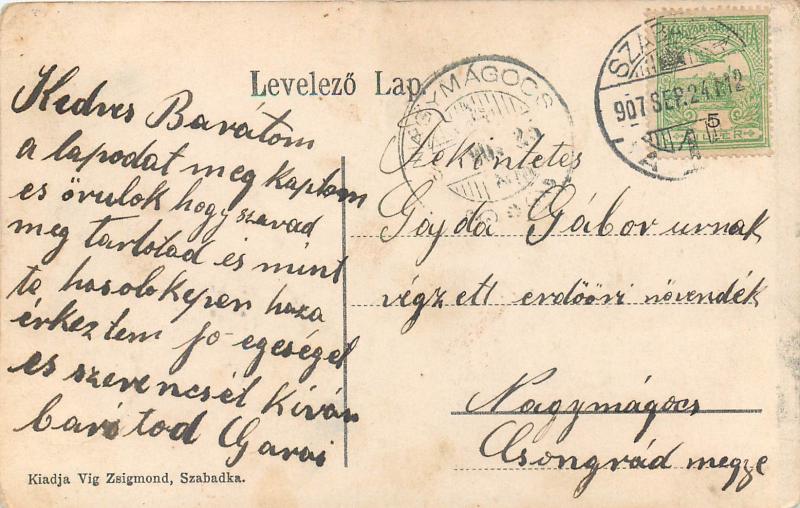 Levelező Lap.
Kedves Barátom
a lapodat meg kaptam
es örulok hogy szavad
meg tartotad es mint
te hasolokepen haza
érkeztem jo egeségel
es szerencsét kíván
barátod Garai
Kiadja Vig Zsigmond, Szabadka.
NAGYMÁGOCS
907 SEP. 24
5
Tekintetes
Gajda Gábor urnak
végzett erdőőri növendék
Nagymágocs
Csongrád megye